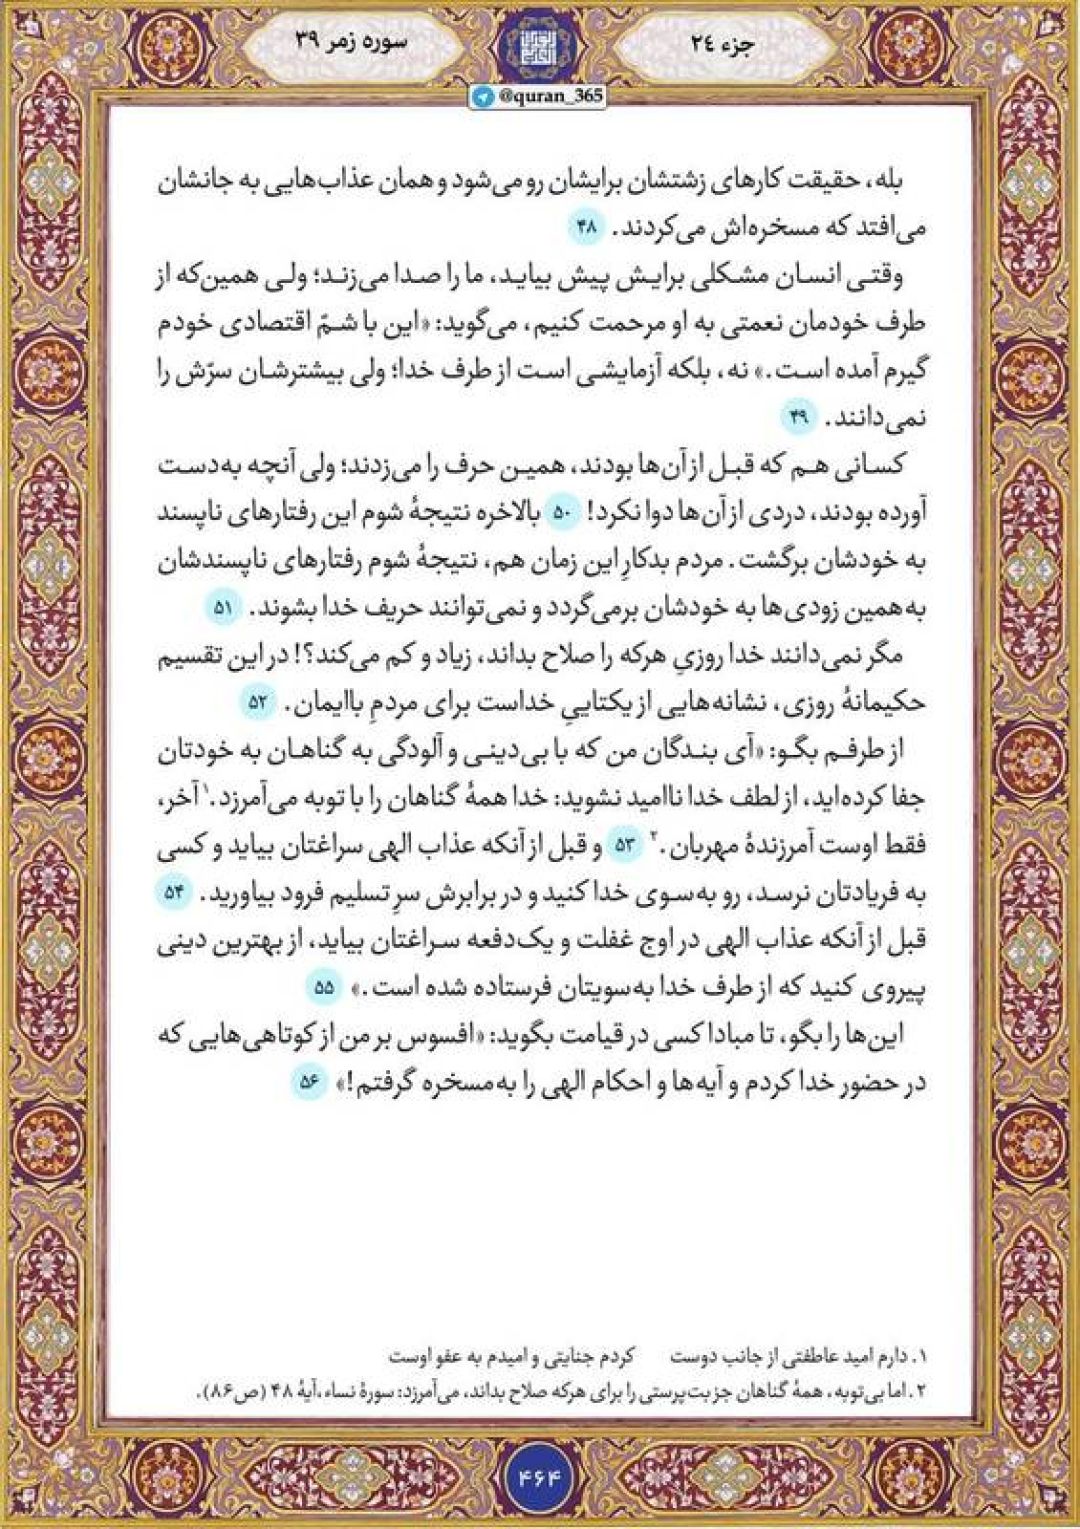 جزء ۲٤
سوره زمر ۳۹
@quran_365
بله، حقیقت کارهای زشتشان برایشان رو می‌شود و همان عذاب‌هایی به جانشان
می‌افتد که مسخره‌اش می‌کردند. ۴۸
وقتی انسان مشکلی برایش پیش بیاید، ما را صدا می‌زند؛ ولی همین‌که از
طرف خودمان نعمتی به او مرحمت کنیم، می‌گوید: «این با شمّ اقتصادی خودم
گیرم آمده است.» نه، بلکه آزمایشی است از طرف خدا؛ ولی بیشترشان سرّش را
نمی‌دانند. ۴۹
کسانی هم که قبل از آن‌ها بودند، همین حرف را می‌زدند؛ ولی آنچه به‌دست
آورده بودند، دردی از آن‌ها دوا نکرد! ۵۰ بالاخره نتیجهٔ شوم این رفتارهای ناپسند
به خودشان برگشت. مردم بدکارِ این زمان هم، نتیجهٔ شوم رفتارهای ناپسندشان
به‌همین زودی‌ها به خودشان برمی‌گردد و نمی‌توانند حریف خدا بشوند. ۵۱
مگر نمی‌دانند خدا روزیِ هرکه را صلاح بداند، زیاد و کم می‌کند؟! در این تقسیم
حکیمانهٔ روزی، نشانه‌هایی از یکتاییِ خداست برای مردمِ باایمان. ۵۲
از طرفم بگو: «آی بندگان من که با بی‌دینی و آلودگی به گناهان به خودتان
جفا کرده‌اید، از لطف خدا ناامید نشوید: خدا همهٔ گناهان را با توبه می‌آمرزد.۱ آخر،
فقط اوست آمرزندهٔ مهربان.۲ ۵۳ و قبل از آنکه عذاب الهی سراغتان بیاید و کسی
به فریادتان نرسد، رو به‌سوی خدا کنید و در برابرش سرِ تسلیم فرود بیاورید. ۵۴
قبل از آنکه عذاب الهی در اوج غفلت و یک‌دفعه سراغتان بیاید، از بهترین دینی
پیروی کنید که از طرف خدا به‌سویتان فرستاده شده است.» ۵۵
این‌ها را بگو، تا مبادا کسی در قیامت بگوید: «افسوس بر من از کوتاهی‌هایی که
در حضور خدا کردم و آیه‌ها و احکام الهی را به‌مسخره گرفتم!» ۵۶
۱. دارم امید عاطفتی از جانب دوست کردم جنایتی و امیدم به عفو اوست
۲. اما بی‌توبه، همهٔ گناهان جز بت‌پرستی را برای هرکه صلاح بداند، می‌آمرزد: سورهٔ نساء، آیهٔ ۴۸ (ص۸۶).
۴۶۴